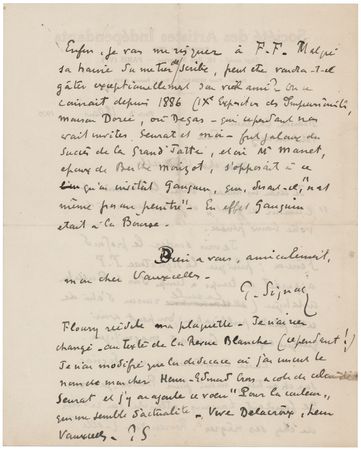 Enfin, je vais me risquer à F.F. Malgré
sa haine du métier de scribe, peut être voudra-t-il
gâter exceptionnellement son vieil ami? On se
connait depuis 1886 (IXe Exposition des Impressionnistes,
maison Dorée, où Degas - qui cependant nous
avait invités Seurat et moi - fut jaloux du
succès de la Grande Jatte, et où Mr Manet,
époux de Berthe Morizot, s'opposait à ce
qu'on invitât Gauguin, qui, disait-il, "n'est
même pas un peintre" - En effet Gauguin
était à la Bourse -
Bien à vous, amicalement,
mon cher Vauxcelles -
P. Signac
Floury réédite ma plaquette - Je n'ai rien
changé - au texte de la Revue Blanche (cependant!)
Je n'ai modifié que la dédicace où j'ai inscrit le
nom de mon cher Henri-Edmond Cross à côté de celui de
Seurat et j'y ai ajouté ce vœu "Pour la couleur"
qui me semble d'actualité - Vive Delacroix, dear
Vauxcelles - P S